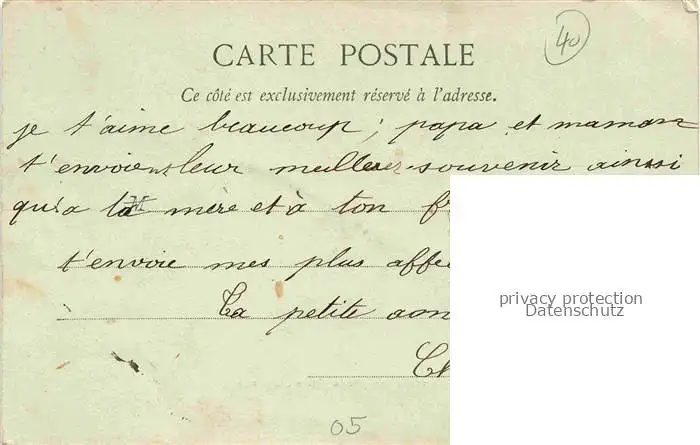 40
CARTE POSTALE
Ce côté est exclusivement réservé à l'adresse.
je t'aime beaucoup ; papa et maman
t'envoient leur meilleur souvenir ainsi
qu'a ta mère et à ton
t'envoie mes plus
privacy protection
Datenschutz
La petite
05